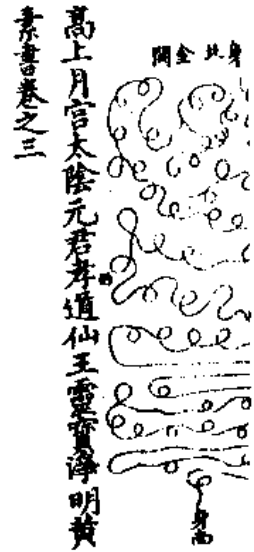 身北金闕
身南
高上月宮太陰元君孝道仙王靈寶淨明黃
素書卷之三